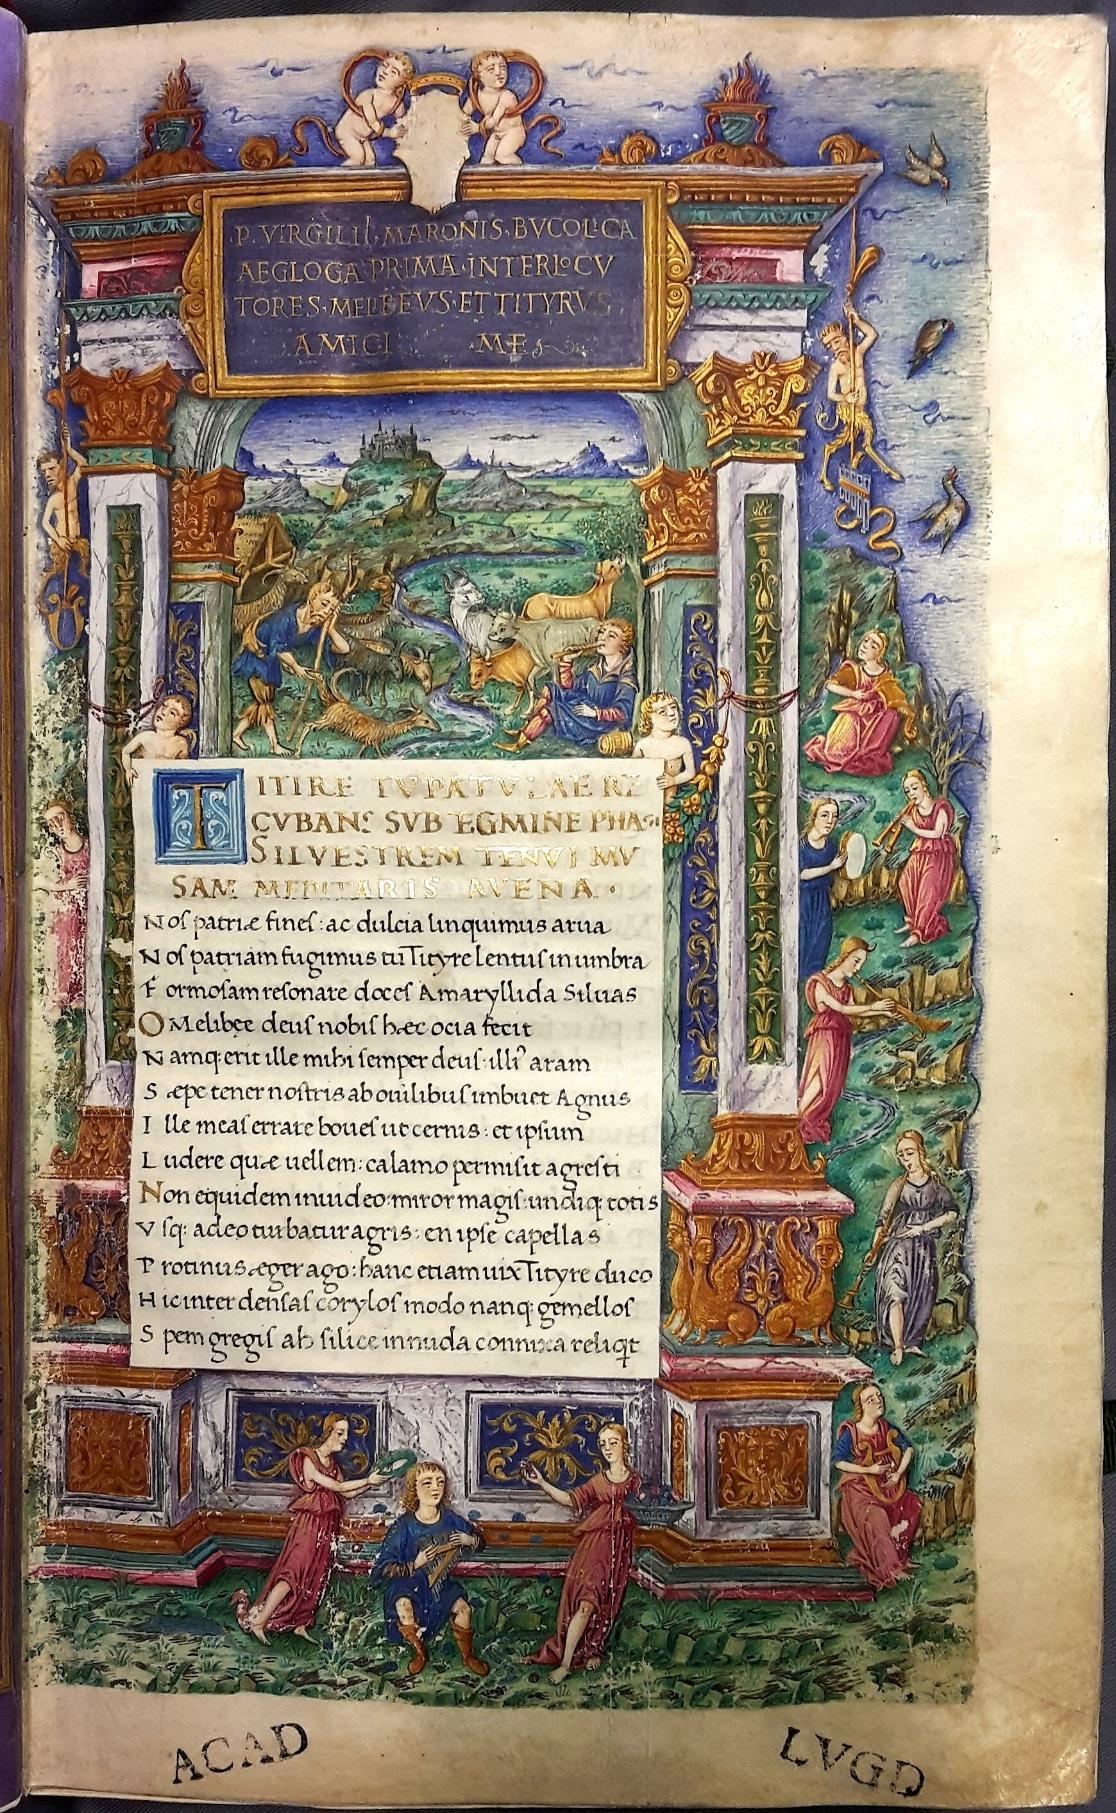 P. VIRGILII. MARONIS. BVCOLICA
AEGLOGA PRIMA. INTERLOCV
TORES. MELBEVS. ET TITYRVS
AMICI ME
TITIRE TV PATVLAE RE
CVBANS SVB EGMINE PHAGI
SILVESTREM TENVI MV
SAM MEDITARIS AVENA.
Noſ patriæ fineſ: ac dulcia linquimus arua
Noſ patriam fugimus tu Tityre lentuſ in umbra
Formoſam reſonare doceſ Amaryllida Siluas
O Melibęe deuſ nobiſ hæc ocia fecit
Namq: erit ille mihi ſemper deuſ: illiꝰ aram
Sæpe tener noſtris ab ouilibuſ imbuet Agnus
Ille meaſ errare boueſ ut cernis: et ipſum
Ludere quæ uellem: calamo permiſit agreſti
Non equidem inuideo: miror magiſ: undiq: totis
Vſq: adeo turbatur agris: en ipſe capellas
Protinus æger ago: hanc etiam uix Tityre duco
Hic inter denſaſ coryloſ modo nanq: gemelloſ
Spem gregiſ ah ſilice in nuda connixa reliqt
ACAD LVGD